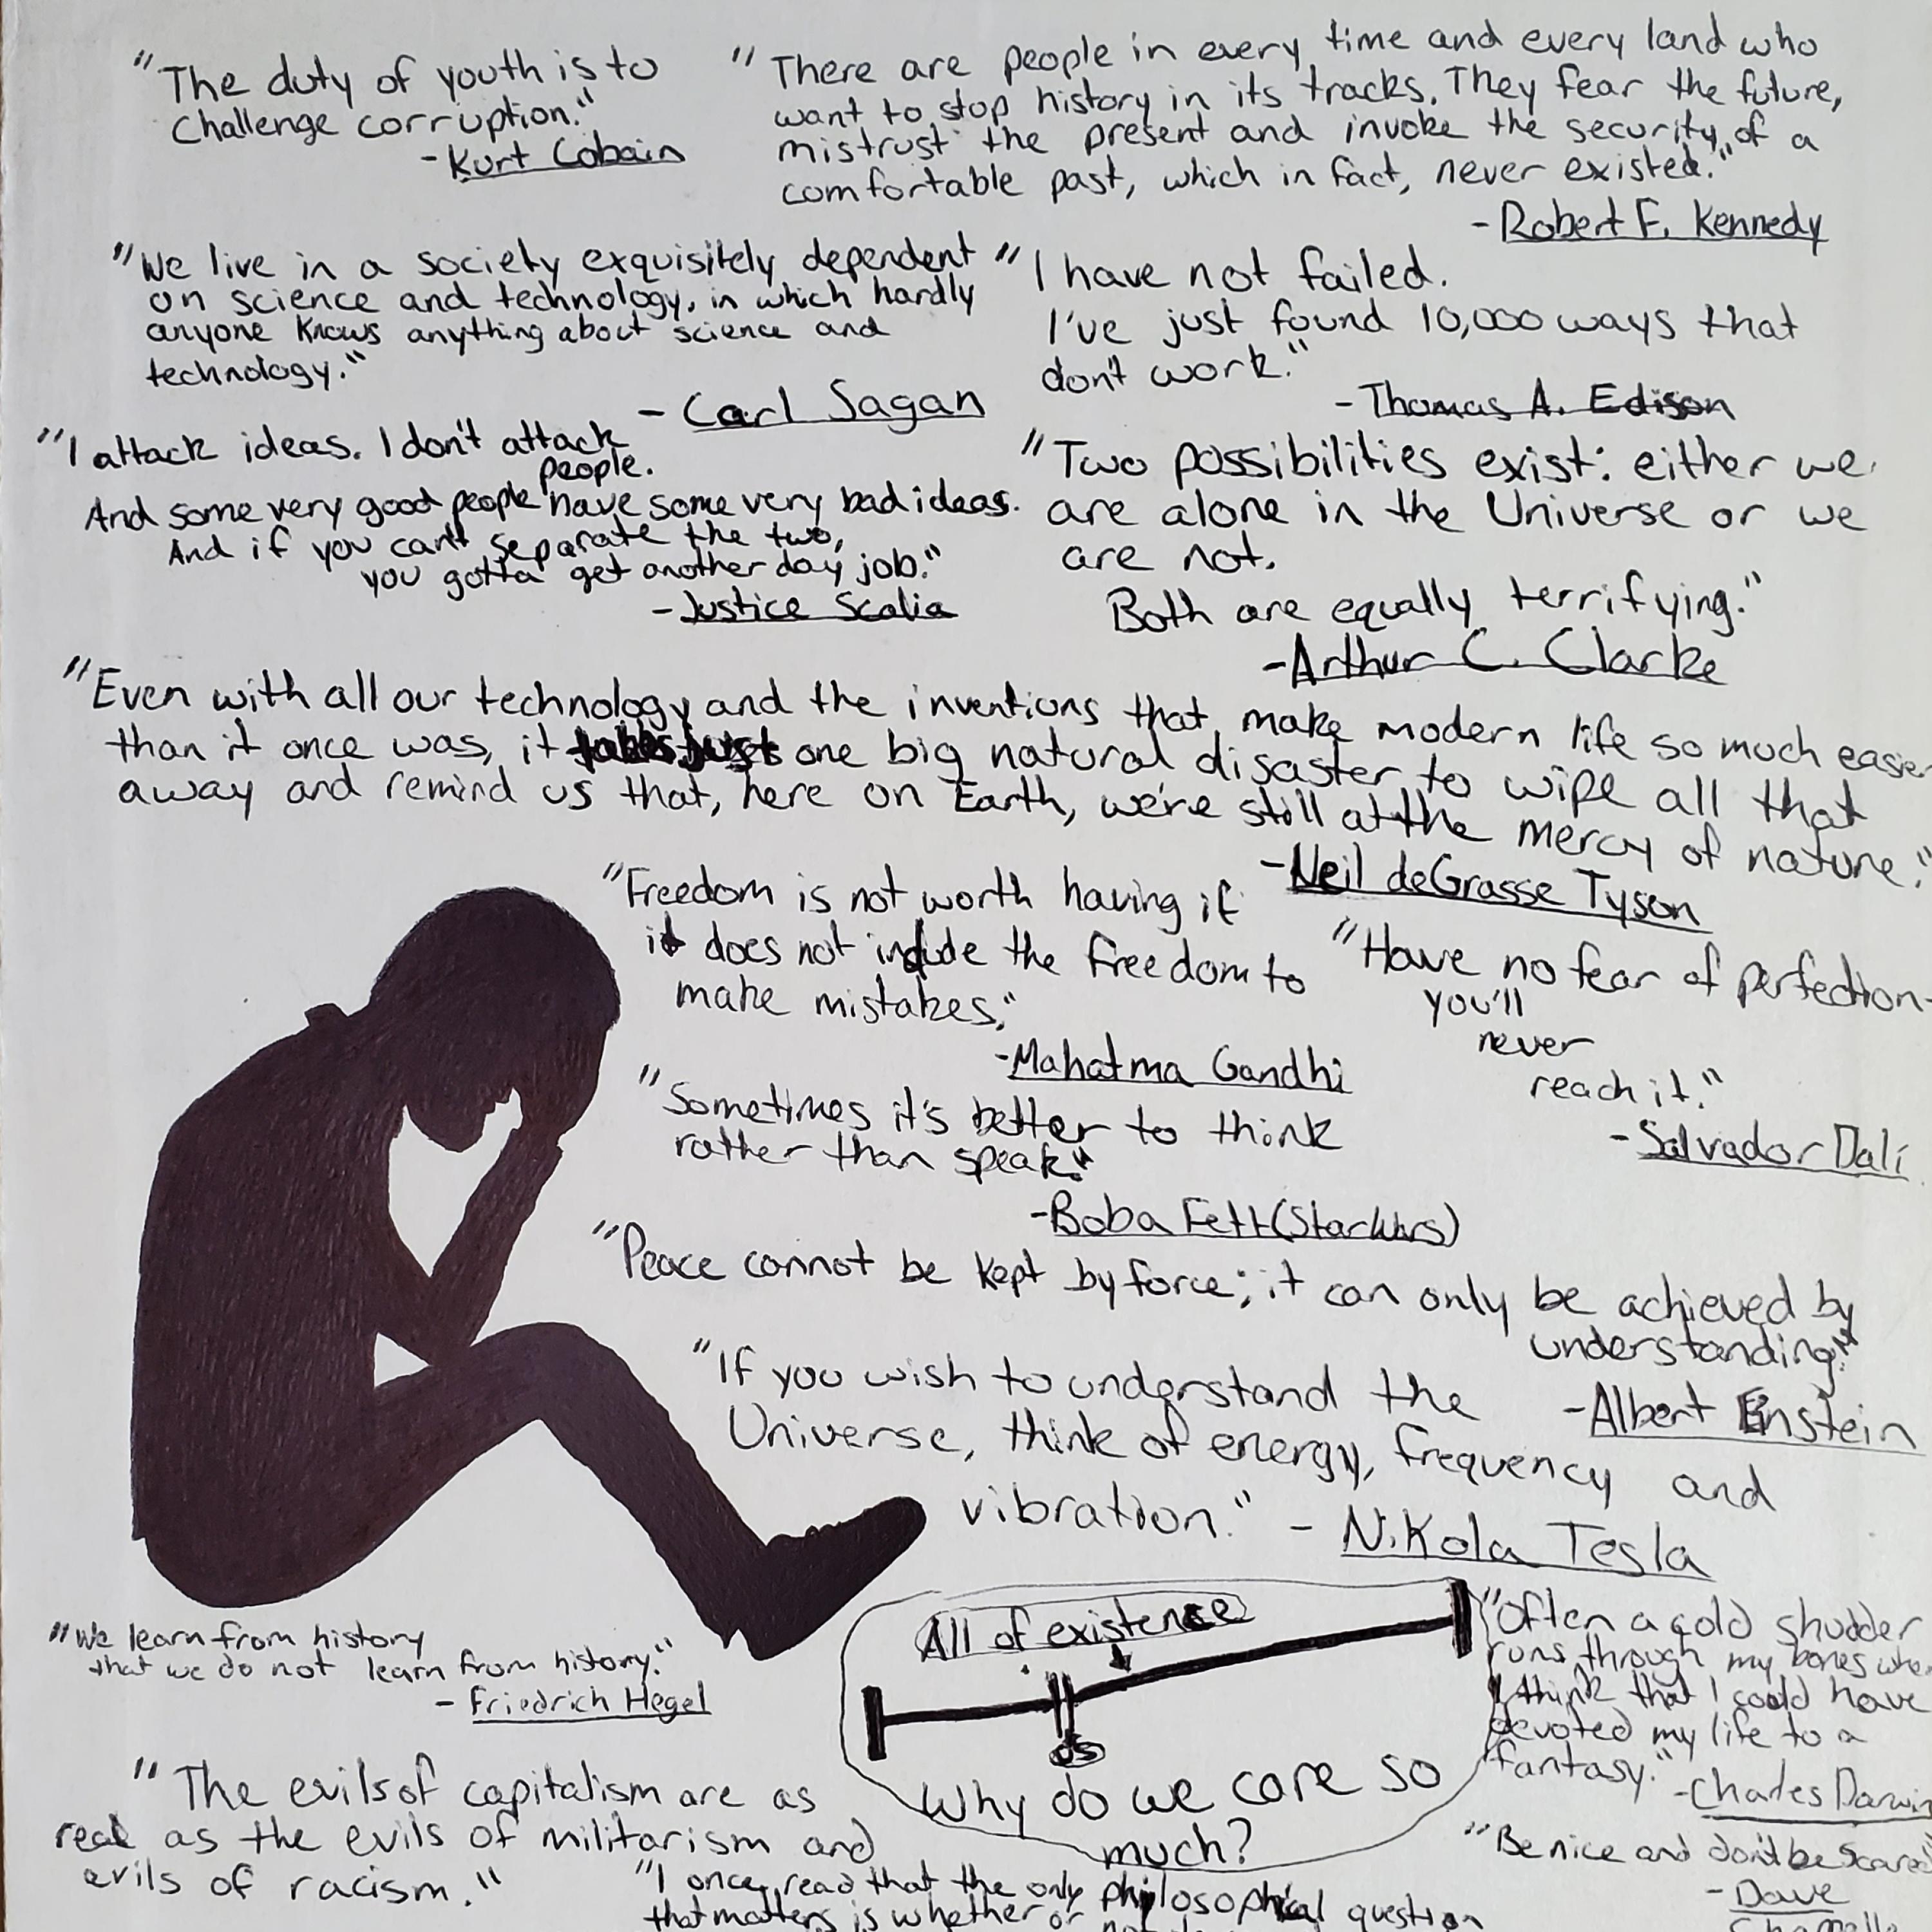 "The duty of youth is to
challenge corruption."
-Kurt Cobain
"There are people in every time and every land who
want to stop history in its tracks. They fear the future,
mistrust the present and invoke the security of a
comfortable past, which in fact, never existed."
-Robert F. Kennedy
"We live in a society exquisitely dependent
on science and technology, in which hardly
anyone knows anything about science and
technology."
- Carl Sagan
"I have not failed.
I've just found 10,000 ways that
don't work."
-Thomas A. Edison
"I attack ideas. I don't attack
people.
And some very good people have some very bad ideas.
And if you can't separate the two,
you gotta get another day job."
-Justice Scalia
"Two possibilities exist: either we
are alone in the Universe or we
are not.
Both are equally terrifying."
-Arthur C. Clarke
"Even with all our technology and the inventions that make modern life so much easier
than it once was, it takes just one big natural disaster to wipe all that
away and remind us that, here on Earth, we're still at the mercy of nature."
-Neil deGrasse Tyson
"Freedom is not worth having if
it does not include the freedom to
make mistakes."
-Mahatma Gandhi
"Have no fear of perfection-
you'll
never
reach it."
-Salvador Dalí
"Sometimes it's better to think
rather than speak."
-Boba Fett (Star Wars)
"Peace cannot be kept by force; it can only be achieved by
understanding."
-Albert Einstein
"If you wish to understand the
Universe, think of energy, frequency and
vibration." - Nikola Tesla
"We learn from history
that we do not learn from history."
- Friedrich Hegel
All of existence
us
Why do we care so
much?
"Often a cold shudder
runs through my bones when
I think that I could have
devoted my life to a
fantasy."
-Charles Darwin
"The evils of capitalism are as
real as the evils of militarism and
evils of racism."
"Be nice and don't be scared"
-Dave
"I once read that the only philosophical question
that matters is whether or